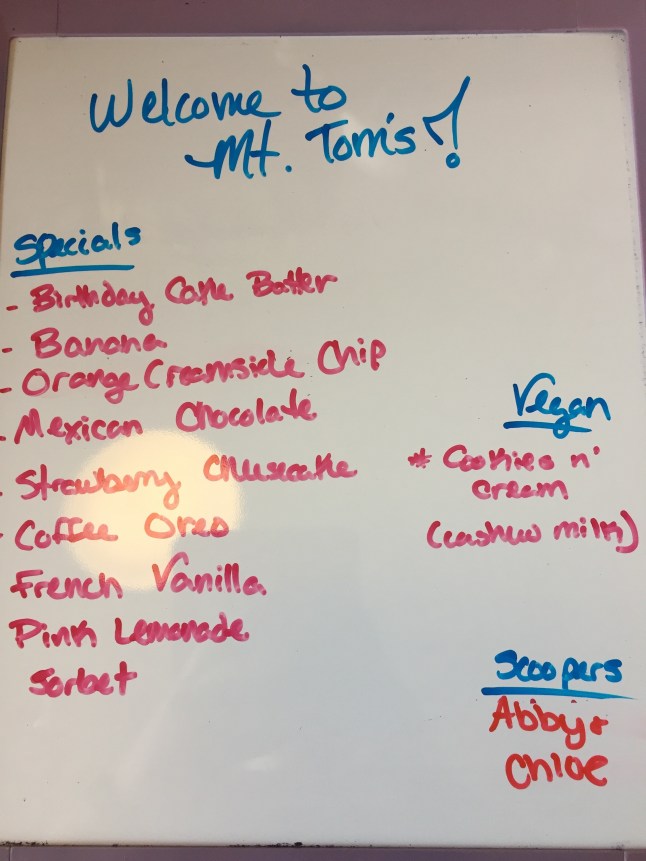 Welcome to
Mt. Tom's!
Specials
- Birthday Cake Batter
- Banana
- Orange Creamsicle Chip
- Mexican Chocolate
- Strawberry Cheesecake
- Coffee Oreo
French Vanilla
Pink Lemonade
Sorbet
Vegan
* Cookies n'
cream
(cashew milk)
Scoopers
Abby +
Chloe